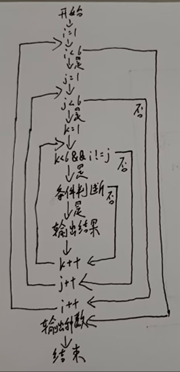 开始
i=1
i<6
是
j=1
j<6
是
否
k=1
k<6&&i!=j
否
是
条件判断
否
是
输出结果
k++
j++
i++
输出种数
结束